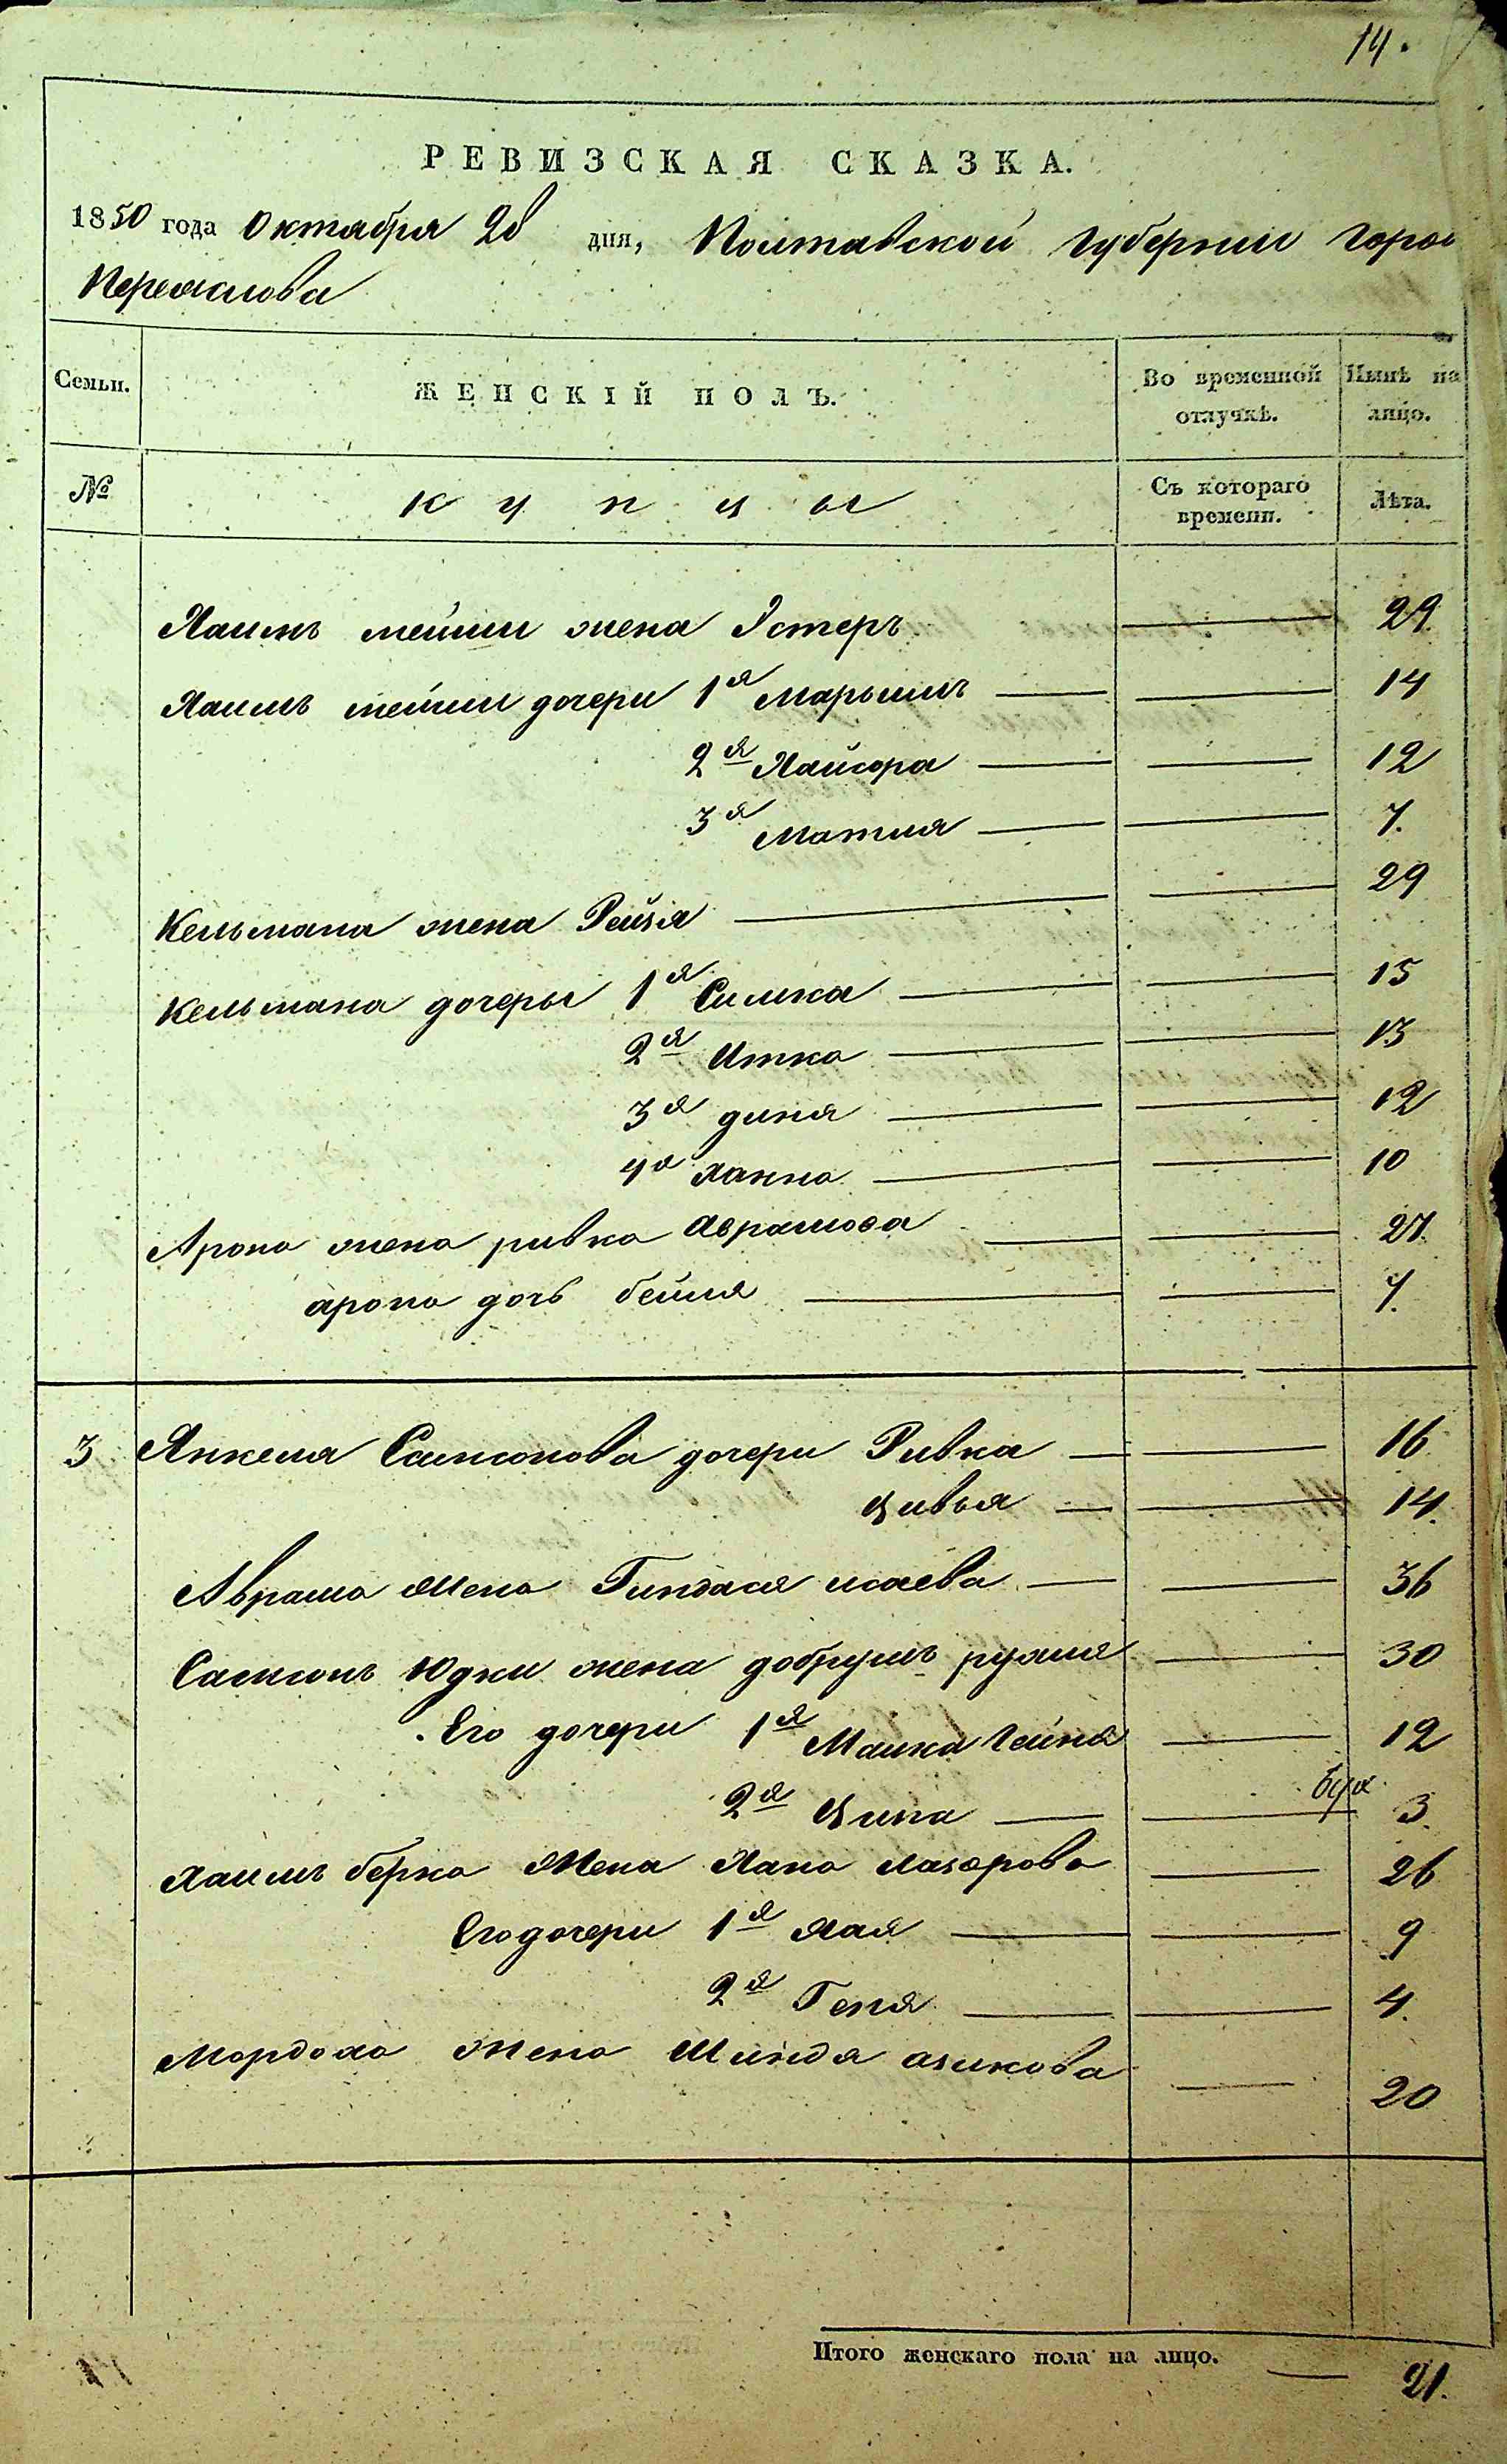 14.
РЕВИЗСКАЯ СКАЗКА.
1850 года Октября 28 дня, Полтавской Губернии Горо
Переяслова
Семьи. ЖЕНСКІЙ ПОЛЪ. Во временной отлучкѣ. Нынѣ на лицо.
№ купцы Съ котораго времени. Лѣта.
Хаимъ мейши жена Эстеръ 29
Хаимъ мейши дочери 1я Марьимъ 14
2я Хайсора 12
3я Матля 7.
Кельмана жена Рейзя 29
Кельмана дочеры 1я Симка 15
2я Итка 13
3я дина 12
4я ханна 10
Арона жена ривка Аврамова 27.
арона дочь бейля 7.
3 Янкеля Самсонова дочери Ривка 16
Цивья 14.
Аврама жена Гиндася исаева 36
Самсонъ Юдки жена добрушъ рухля 30
Его дочери 1я Малка Гейна 12
2я Ципа 3.
хаимъ берка жена Хана лазорова 26
Его дочери 1я хая 9
2я Геня 4.
Мордоха жена Шиндя азикова 20
Итого женскаго пола на лицо. 21.